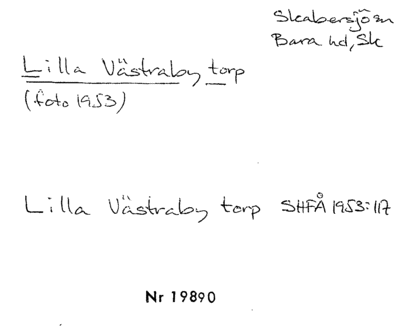 Skabersjö sn
Bara hd, Sk
Lilla Västraby torp
(foto 1953)
Lilla Västraby torp SHFÅ 1953:117
Nr 19890